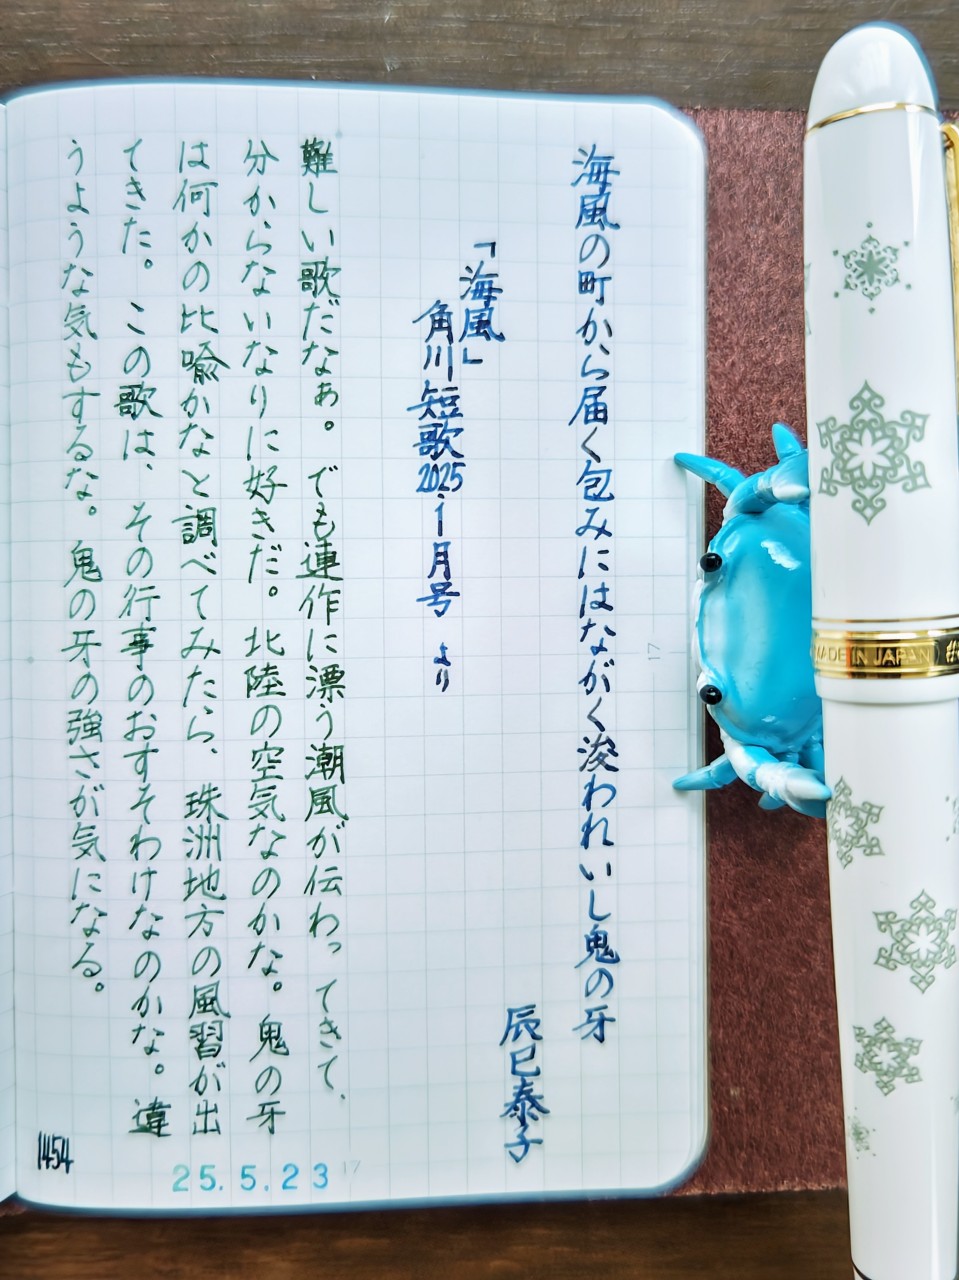 海風の町から届く包みにはながく浚われいし鬼の牙
辰巳泰子
「海風」
角川短歌2025.1月号 より
難しい歌だなぁ。でも連作に漂う潮風が伝わってきて、
分からないなりに好きだ。北陸の空気なのかな。鬼の牙
は何かの比喩かなと調べてみたら、珠洲地方の風習が出
てきた。この歌は、その行事のおすそわけなのかな。違
うような気もするな。鬼の牙の強さが気になる。
1454
25.5.23
17
17
MADE IN JAPAN